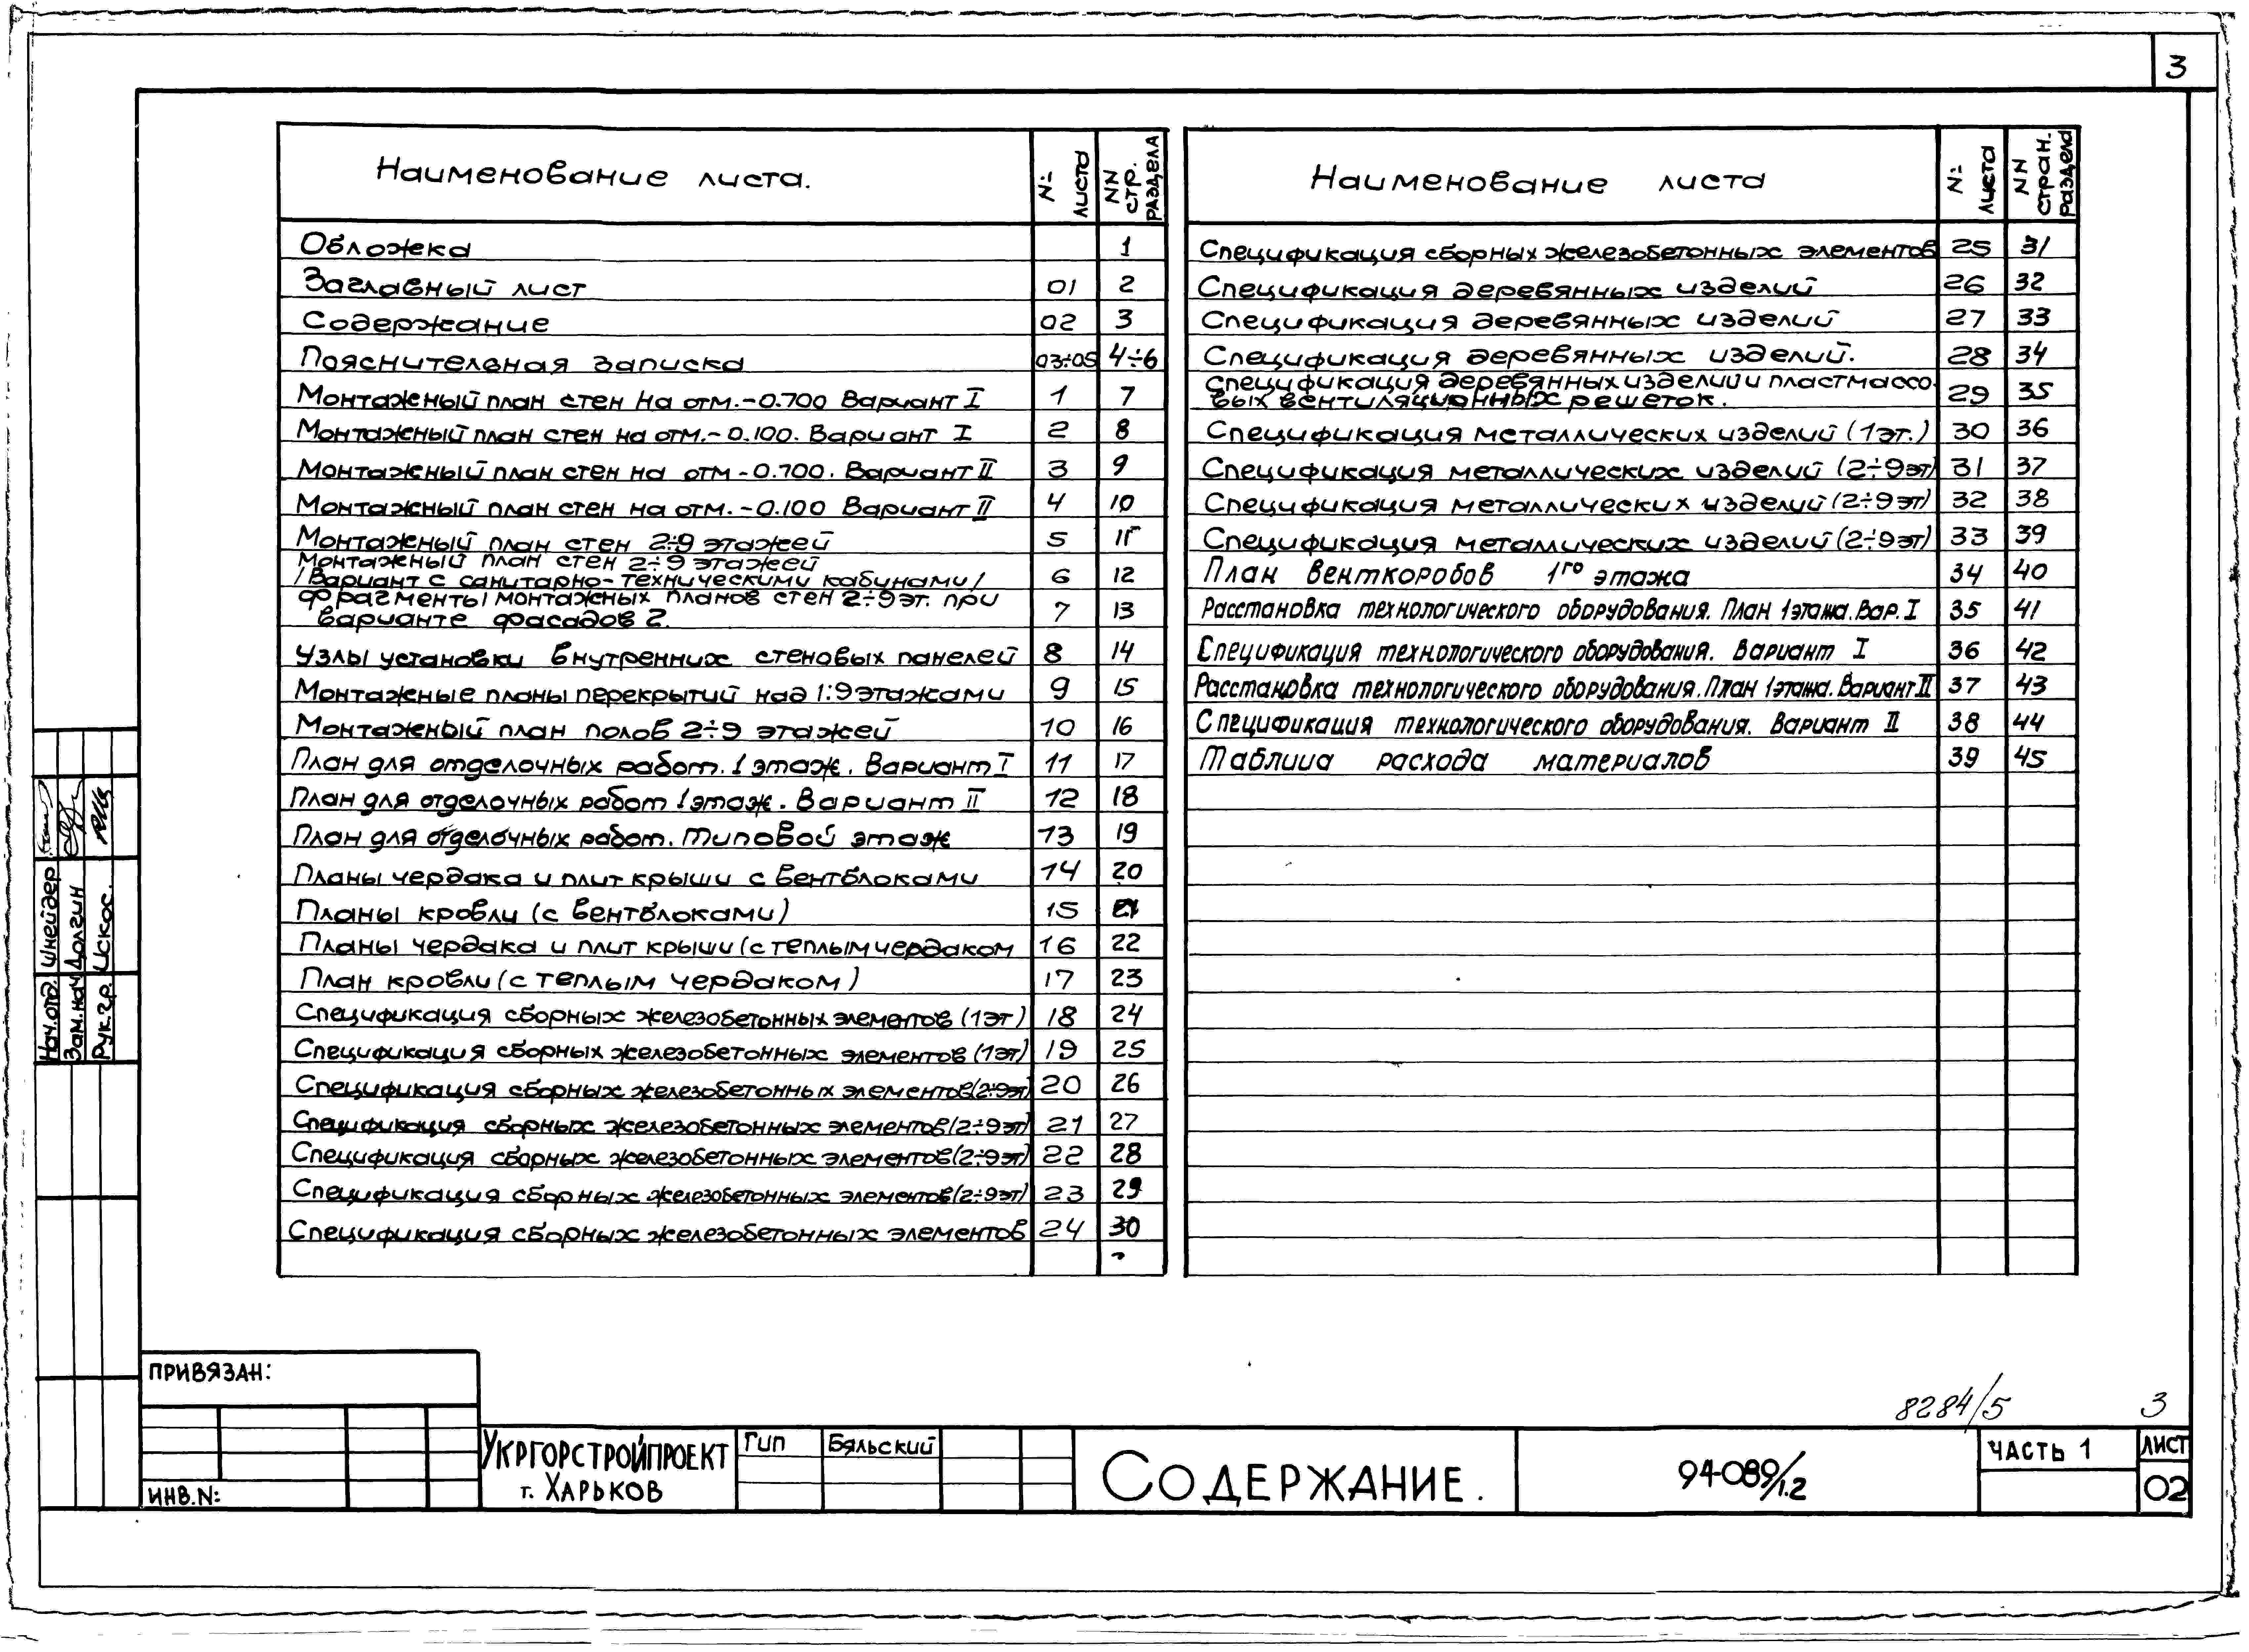 3
Наименование листа. № листа NN стр. раздела
Обложка 1
Заглавный лист 01 2
Содержание 02 3
Пояснительная записка 03÷05 4÷6
Монтажный план стен на отм.-0.700 Вариант I 1 7
Монтажный план стен на отм.-0.100. Вариант I 2 8
Монтажный план стен на отм-0.700. Вариант II 3 9
Монтажный план стен на отм.-0.100 Вариант II 4 10
Монтажный план стен 2÷9 этажей 5 11
Монтажный план стен 2÷9 этажей
/Вариант с санитарно-техническими кабинами/ 6 12
Фрагменты монтажных планов стен 2÷9 эт. при
варианте фасадов 2. 7 13
Узлы установки внутренних стеновых панелей 8 14
Монтажные планы перекрытий над 1:9 этажами 9 15
Монтажный план полов 2÷9 этажей 10 16
План для отделочных работ. 1 этаж. Вариант I 11 17
План для отделочных работ 1 этаж. Вариант II 12 18
План для отделочных работ. Типовой этаж 13 19
Планы чердака и плит крыши с вентблоками 14 20
Планы кровли (с вентблоками) 15 21
Планы чердака и плит крыши (с теплым чердаком 16 22
План кровли (с теплым чердаком) 17 23
Спецификация сборных железобетонных элементов (1эт) 18 24
Спецификация сборных железобетонных элементов (1эт) 19 25
Спецификация сборных железобетонных элементов(2÷9эт) 20 26
Спецификация сборных железобетонных элементов(2÷9эт) 21 27
Спецификация сборных железобетонных элементов(2÷9эт) 22 28
Спецификация сборных железобетонных элементов(2÷9эт) 23 29
Спецификация сборных железобетонных элементов 24 30
Наименование листа № листа NN стран. раздела
Спецификация сборных железобетонных элементов 25 31
Спецификация деревянных изделий 26 32
Спецификация деревянных изделий 27 33
Спецификация деревянных изделий. 28 34
Спецификация деревянных изделий и пластмассо-
вых вентиляционных решеток. 29 35
Спецификация металлических изделий (1эт.) 30 36
Спецификация металлических изделий (2÷9эт) 31 37
Спецификация металлических изделий (2÷9эт) 32 38
Спецификация металлических изделий (2÷9эт) 33 39
План венткоробов 1го этажа 34 40
Расстановка технологического оборудования. План 1 этажа. Вар. I 35 41
Спецификация технологического оборудования. Вариант I 36 42
Расстановка технологического оборудования. План 1 этажа. Вариант II 37 43
Спецификация технологического оборудования. Вариант II 38 44
Таблица расхода материалов 39 45
Нач.отд. Шнейдер
Зам.нач Долгин
Рук.гр. Искос.
ПРИВЯЗАН:
ИНВ.N:
УКРГОРСТРОЙПРОЕКТ
г. ХАРЬКОВ
Гип Бяльский
СОДЕРЖАНИЕ.
8284/5 3
94-089/1.2
ЧАСТЬ 1
ЛИСТ
02